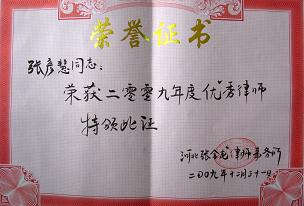 荣誉证书
张彦慧同志：
荣获二零零九年度优秀律师
特颁此证
河北张金龙律师事务所
二00九年十二月三十一日